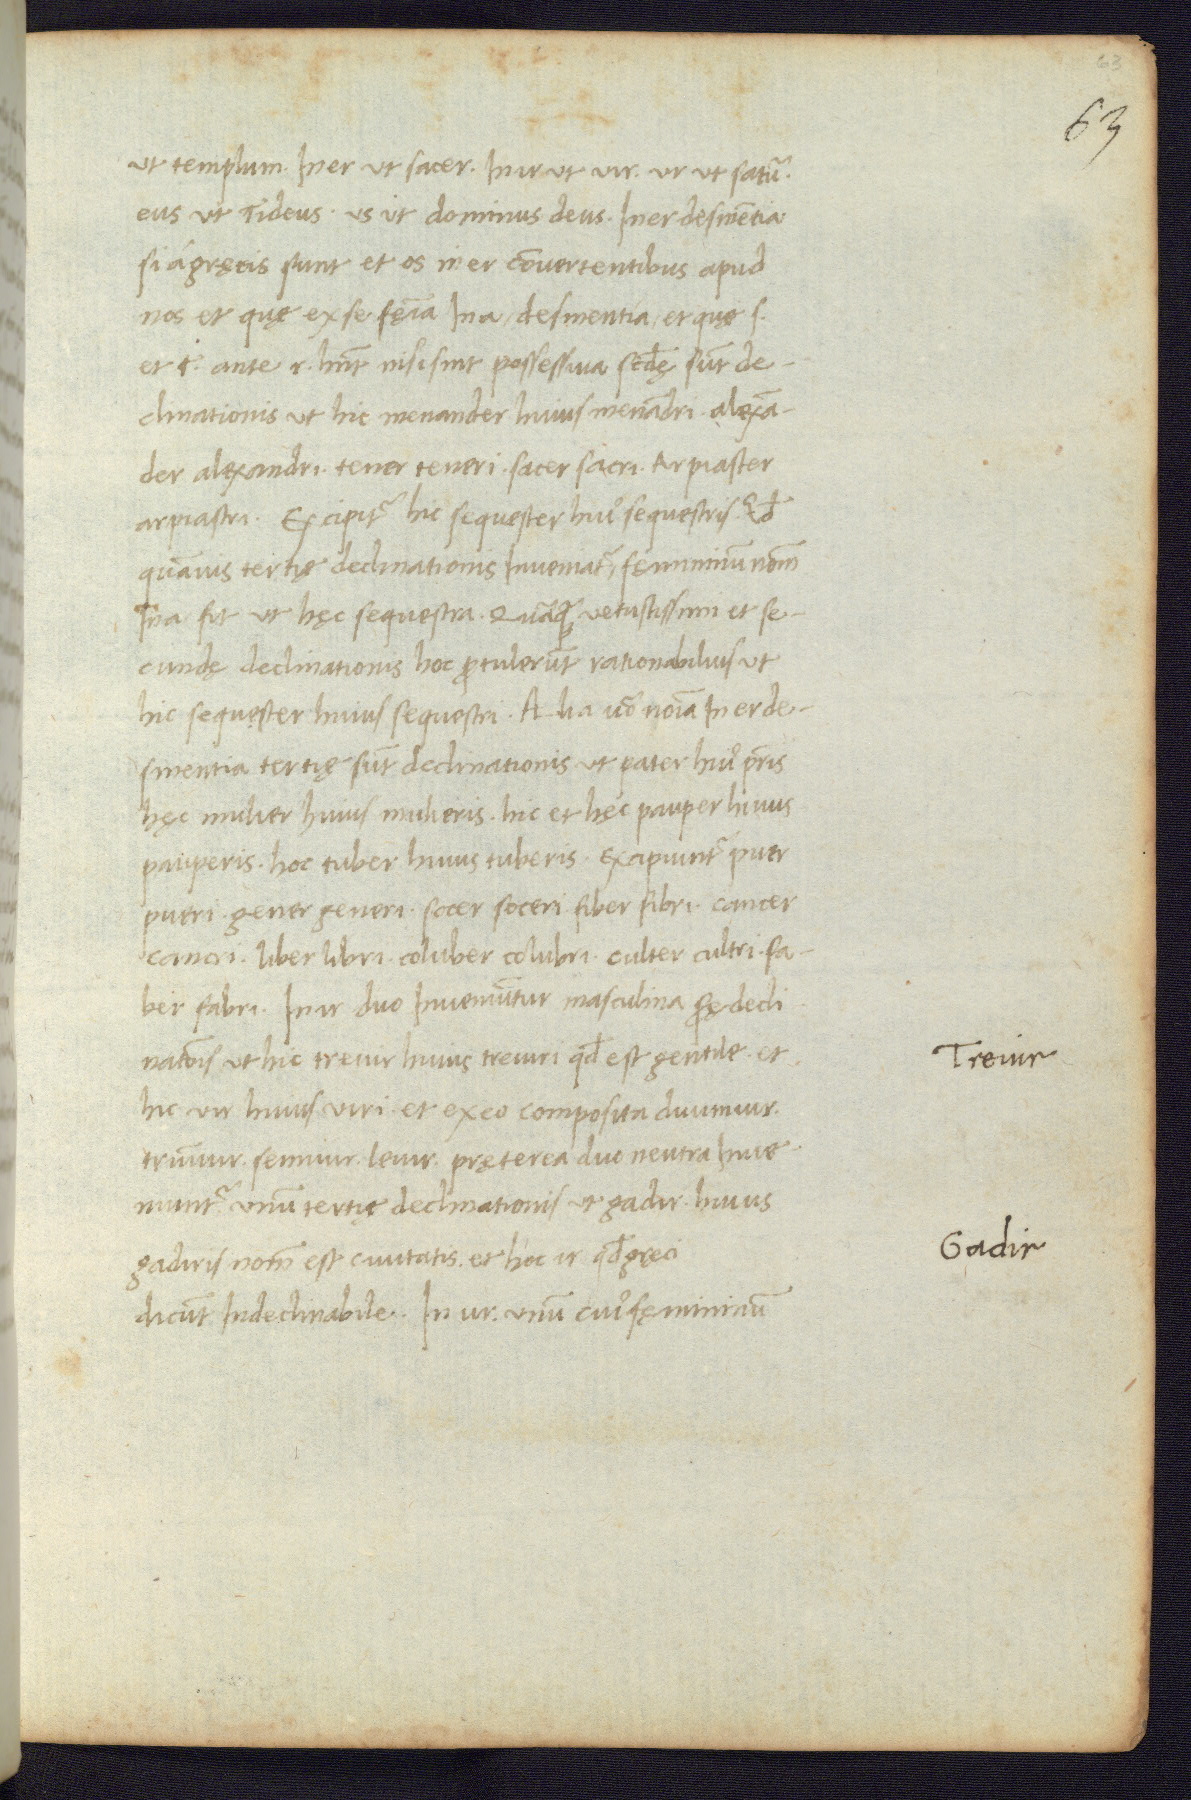 63
63
ut templum. In er ut sacer. In ir ut vir. ur ut satur̃.
eus ut Tideus. us ut dominus deus. In er desinẽtia
si á gręcis sunt et os in er cõvertentibus apud
nos et quę ex se fęĩa In a desinentia, et quę s.
et t. ante r. hñt nisi sint possessiva scđę sũt de-
clinationis ut hic menander huius menãdri. alexã-
der alexandri. tener teneri. sacer sacri. Arpiaster
arpiastri. Excipit̃ hic sequester huiꝰ sequestris. Qđ
quãvis tertię declinationis Inveniat̃, fęmininũ nom̃
In a fit ut hęc sequestra. Quãq̃ vetustissimi et se-
cundę declinationis hoc ꝓtulerũt rationabilius ut
hic sequester huius sequestri. Alia uõ noĩa In er de-
sinentia tertię sũt declinationis ut pater huiꝰ pr̃is
hęc mulier huius mulieris. hic et hęc pauper huius
pauperis. hoc tuber huius tuberis. Excipiunt̃ puer
pueri. gener generi. socer soceri. fiber fibri. cancer
cancri. liber libri. coluber colubri. culter cultri. fa-
ber fabri. In ir duo Inveniũtur masculina scđę decli
natõis ut hic trevir huius treviri qđ est gentile. et
hic vir huius viri. et ex eo composita duumvir.
triũvir. semivir. levir. pręterea duo neutra Inve
niunt̃ unũ tertię declinationis ut gadir. huius
gadiris nom̃ est civitatis. et hoc ir qđ gręci
dicũt Indeclinabile. In ur. unũ cuiꝰ fęmininũ
Trevir
Gadir